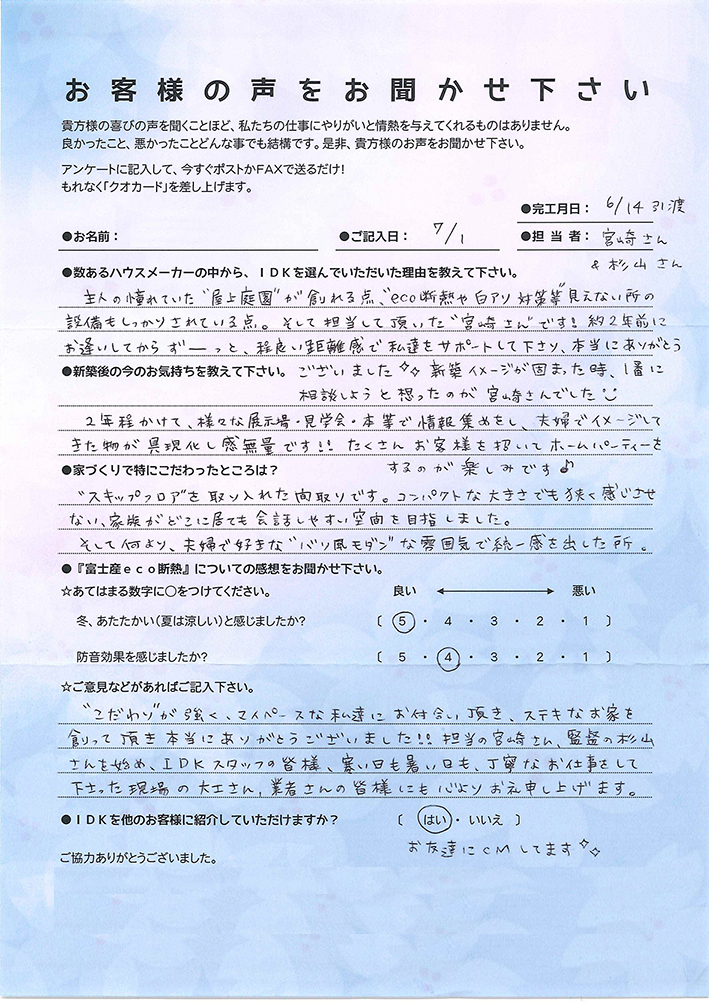 お客様の声をお聞かせ下さい
貴方様の喜びの声を聞くことほど、私たちの仕事にやりがいと情熱を与えてくれるものはありません。
良かったこと、悪かったことどんな事でも結構です。是非、貴方様のお声をお聞かせ下さい。
アンケートに記入して、今すぐポストかFAXで送るだけ!
もれなく「クオカード」を差し上げます。
●完工月日: 6/14 引渡
●お名前: ●ご記入日: 7/1 ●担当者: 宮崎さん
& 杉山さん
●数あるハウスメーカーの中から、IDKを選んでいただいた理由を教えて下さい。
主人の憧れていた“屋上庭園”が創れる点、“eco断熱や白アリ対策等”見えない所の
設備もしっかりされている点。そして担当して頂いた“宮崎さん”です! 約2年前に
お逢いしてからずーーっと、程良い距離感で私達をサポートして下さり、本当にありがとう
●新築後の今のお気持ちを教えて下さい。 ございました 新築イメージが固まった時、1番に
相談しようと想ったのが宮崎さんでした
2年程かけて、様々な展示場・見学会・本等で情報集めをし、夫婦でイメージして
きた物が具現化し感無量です!! たくさんお客様を招いてホームパーティーを
●家づくりで特にこだわったところは? するのが楽しみです♪
“スキップフロア”を取り入れた間取りです。コンパクトな大きさでも狭く感じさせ
ない、家族がどこに居ても会話しやすい空間を目指しました。
そして何より、夫婦で好きな“バリ風モダン”な雰囲気で統一感を出した所。
●『富士産eco断熱』についての感想をお聞かせ下さい。
☆あてはまる数字に○をつけてください。 良い ←→ 悪い
冬、あたたかい(夏は涼しい)と感じましたか? 〔 5 ・ 4 ・ 3 ・ 2 ・ 1 〕
防音効果を感じましたか? 〔 5 ・ 4 ・ 3 ・ 2 ・ 1 〕
☆ご意見などがあればご記入下さい。
“こだわり”が強く、マイペースな私達にお付合い頂き、ステキなお家を
創って頂き本当にありがとうございました!! 担当の宮崎さん、監督の杉山
さんを始め、IDKスタッフの皆様、寒い日も暑い日も、丁寧なお仕事をして
下さった現場の大工さん、業者さんの皆様にも心よりお礼申し上げます。
●IDKを他のお客様に紹介していただけますか? 〔 はい ・ いいえ 〕
お友達にCMしてます
ご協力ありがとうございました。